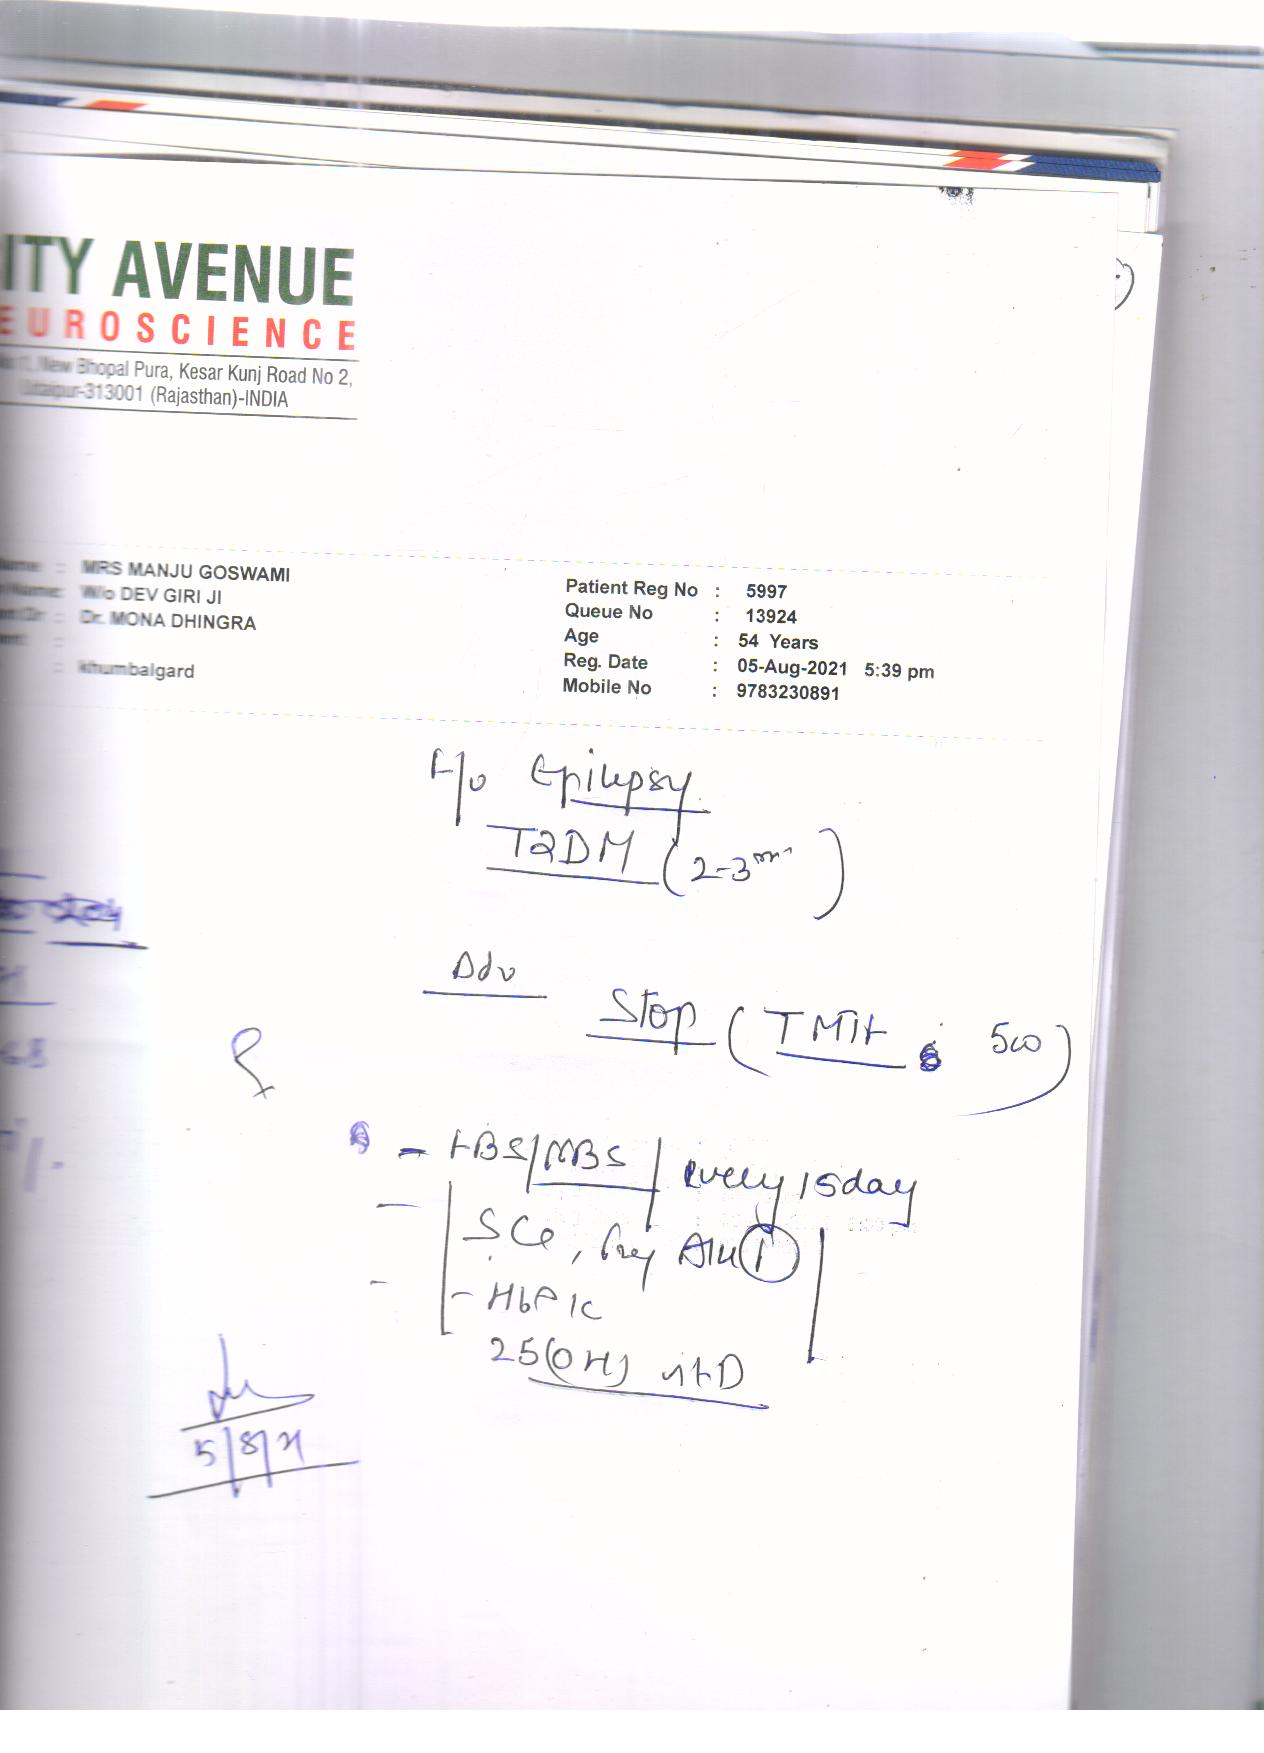 ITY AVENUE
EUROSCIENCE
New Bhopal Pura, Kesar Kunj Road No 2,
Udaipur-313001 (Rajasthan)-INDIA
Name : MRS MANJU GOSWAMI
W/o DEV GIRI JI
Dr. MONA DHINGRA
khumbalgard
Patient Reg No : 5997
Queue No : 13924
Age : 54 Years
Reg. Date : 05-Aug-2021 5:39 pm
Mobile No : 9783230891
Epilepsy
T2DM (2-3
Adv
Stop ( 500 )
- FBS/ every 15day
-
- HbA1c
25(OH) vit D
5/8/21